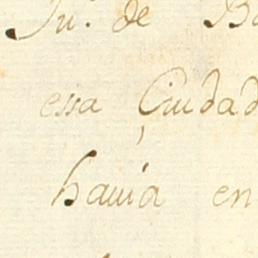 Ju.º de B
essa Ciudad
havia en